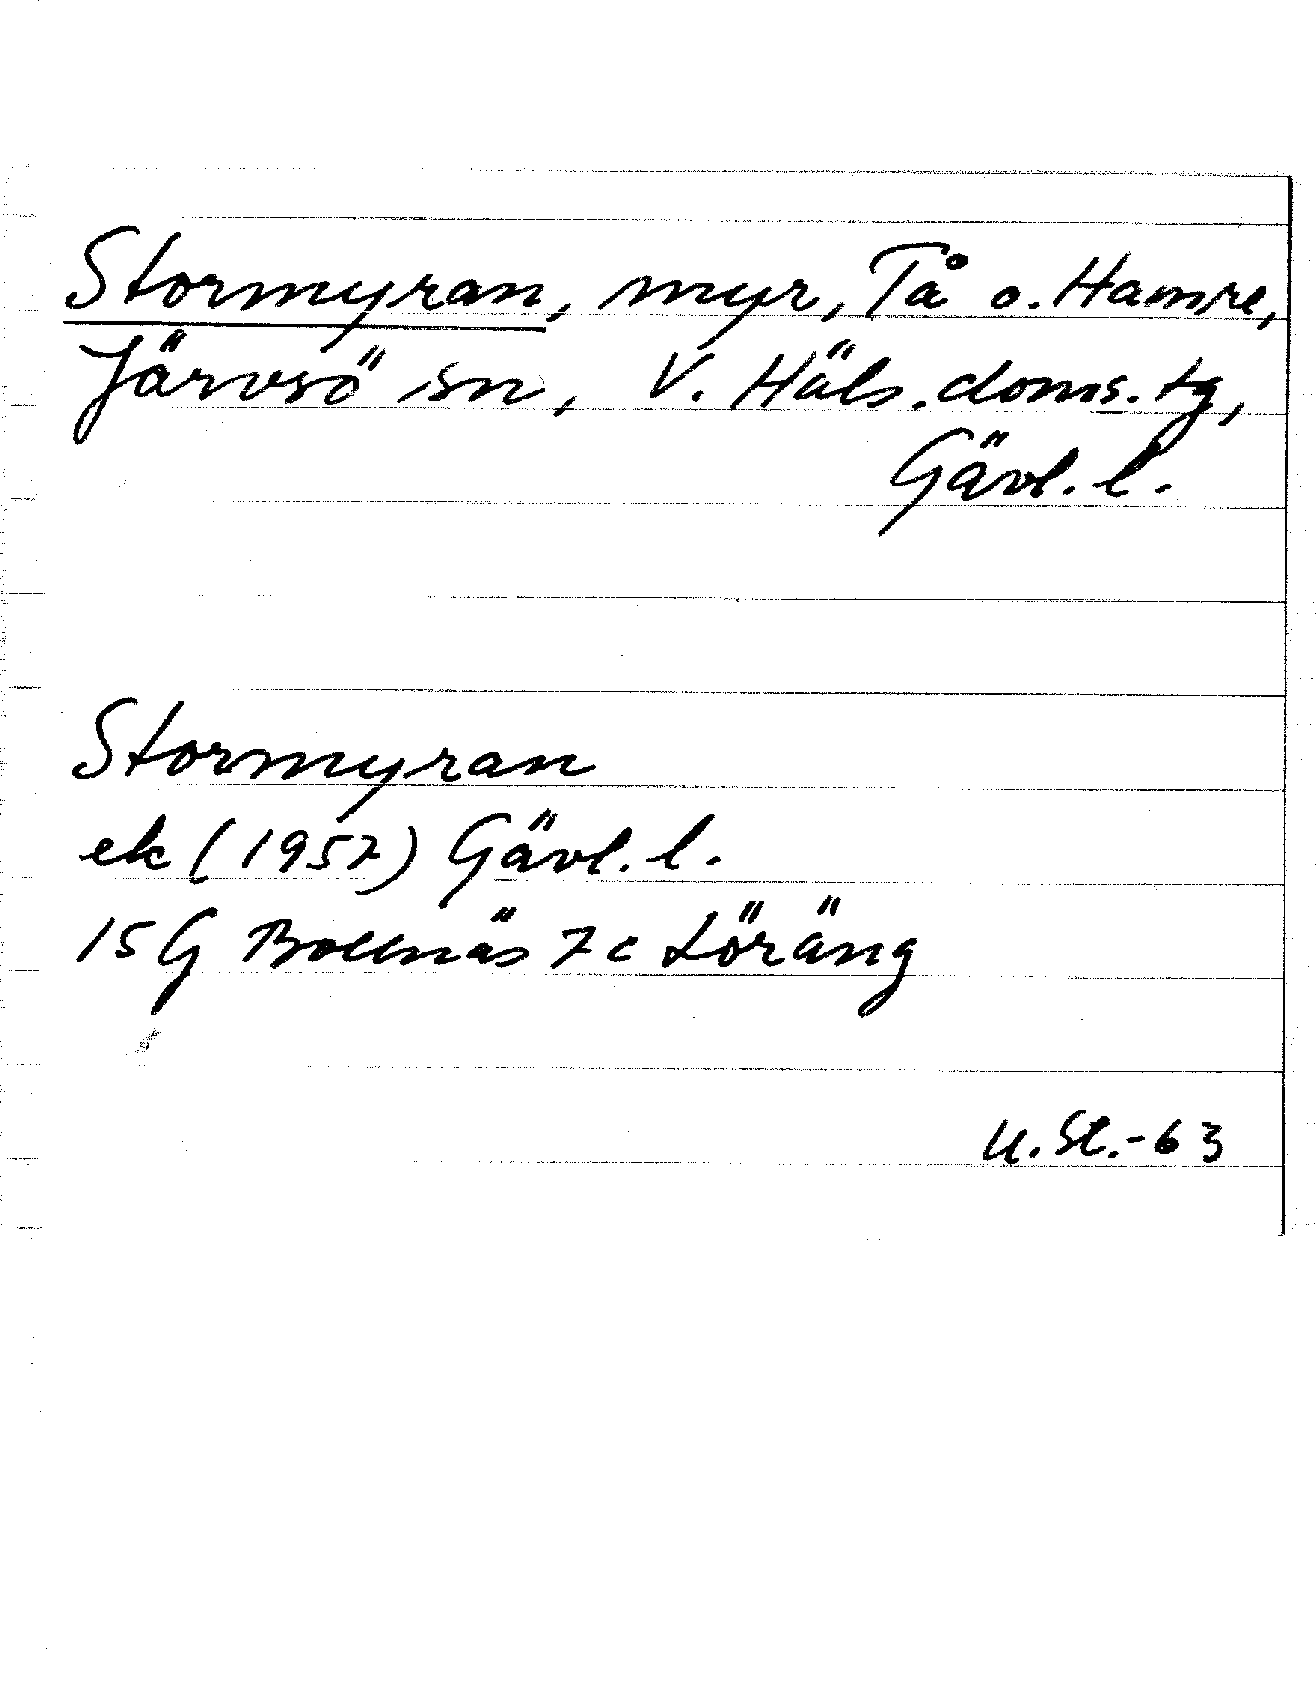 Stormyran, myr, Tå o. Hamre,
Järvsö sn, V. Häls. doms. tg,
Gävl. l.
Stormyran
ek (1957) Gävl. l.
15 G Bollnäs 7 c Löräng
U. St. - 63